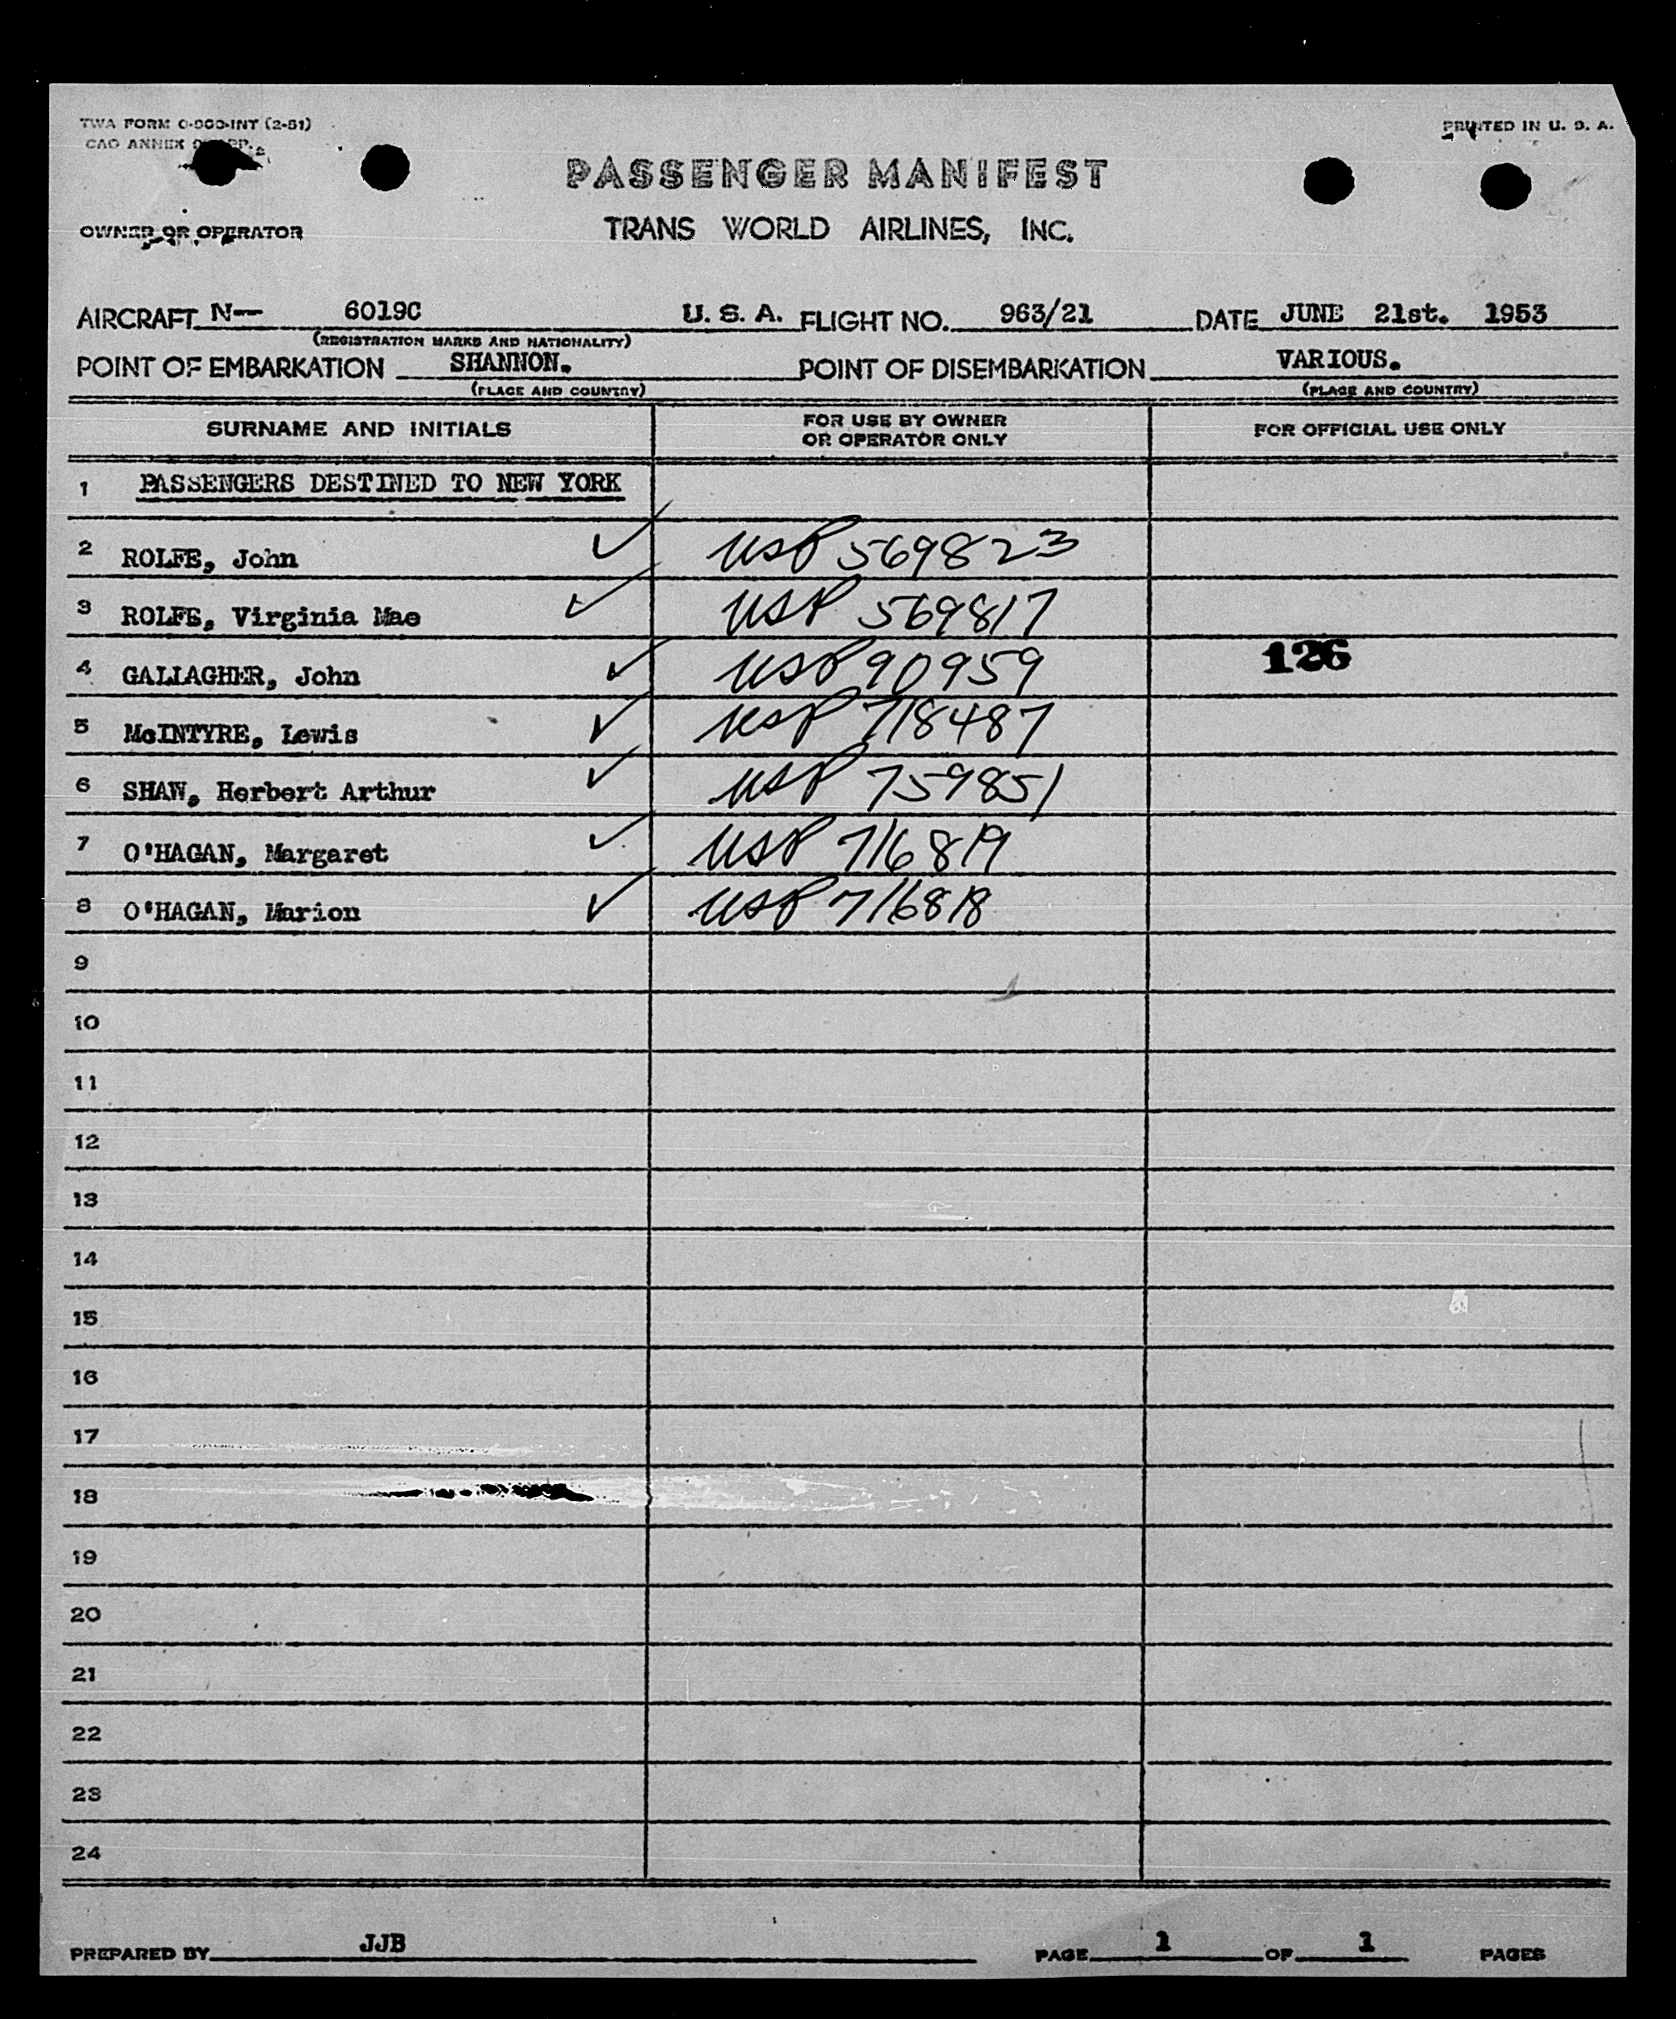 TWA FORM O-900-INT (2-51)
PRINTED IN U. S. A.
CAO ANNEX 9
PASSENGER MANIFEST
OWNER OR OPERATOR
TRANS WORLD AIRLINES, INC.
AIRCRAFT N-- 6019C U. S. A. FLIGHT NO. 963/21 DATE JUNE 21st. 1953
(REGISTRATION MARKS AND NATIONALITY)
POINT OF EMBARKATION SHANNON. POINT OF DISEMBARKATION VARIOUS.
(PLACE AND COUNTRY) (PLACE AND COUNTRY)
SURNAME AND INITIALS FOR USE BY OWNER OR OPERATOR ONLY FOR OFFICIAL USE ONLY
1 PASSENGERS DESTINED TO NEW YORK
2 ROLFE, John ✓ USP 569823
3 ROLFE, Virginia Mae ✓ USP 569817
4 GALLAGHER, John ✓ USP 90959 126
5 McINTYRE, Lewis ✓ USP 718487
6 SHAW, Herbert Arthur ✓ USP 759851
7 O'HAGAN, Margaret ✓ USP 716819
8 O'HAGAN, Marion ✓ USP 716818
9
10
11
12
13
14
15
16
17
18
19
20
21
22
23
24
PREPARED BY JJB PAGE 1 OF 1 PAGES